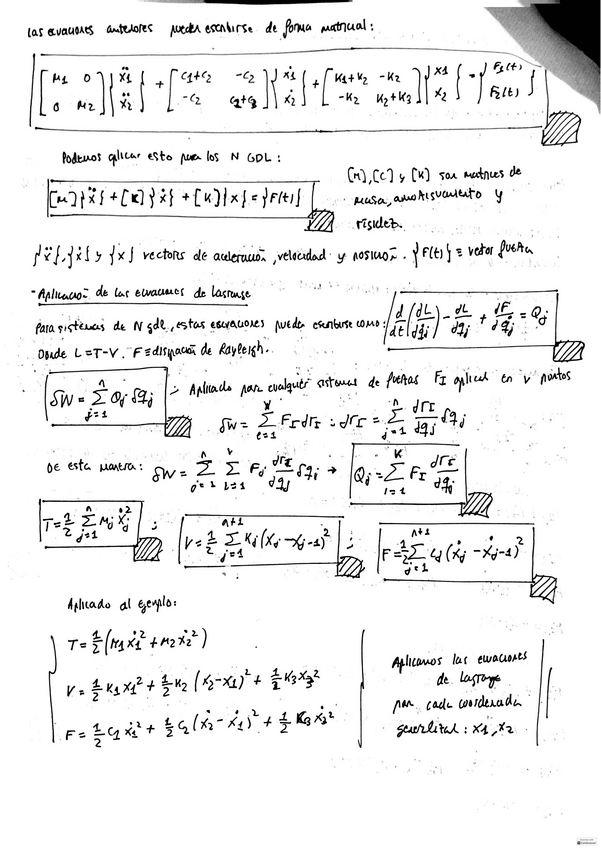 Las ecuaciones anteriores pueden escribirse de forma matricial:
[M1 0; 0 M2]{ẍ1; ẍ2} + [C1+C2 -C2; -C2 C2+C3]{ẋ1; ẋ2} + [K1+K2 -K2; -K2 K2+K3]{x1; x2} = {F1(t); F2(t)}
Podemos aplicar esto para los N GDL:
[M]{ẍ} + [K]{ẋ} + [K]{x} = {F(t)}
[M],[C] y [K] son matrices de
masa, amortiguamiento y
rigidez.
{ẍ},{ẋ} y {x} vectores de aceleración, velocidad y posición. {F(t)} ≡ vector fuerza
- Aplicación de las ecuaciones de Lagrange
Para sistemas de N gdl, estas ecuaciones pueden escribirse como: d/dt(dL/dq̇j) - dL/dqj + dF/dq̇j = Qj
Donde L=T-V. F≡disipación de Rayleigh.
δW = Σ_{j=1}^{n} Qj δqj ;- Aplicado para cualquier sistema de fuerzas FI aplicad en v puntos
δW = Σ FI drI ; drI = Σ_{j=1}^{n} drI/dqj δqj
De esta manera: δW = Σ_{j=1}^{n} Σ_{i=1}^{v} Fj drI/dqj δqj → Qj = Σ_{i=1}^{K} FI drI/dqj
T = 1/2 Σ_{j=1}^{n} Mj ẋj² ; V = 1/2 Σ_{j=1}^{n+1} Kj (xj - xj-1)² ; F = 1/2 Σ_{j=1}^{n+1} Cj (ẋj - ẋj-1)²
Aplicado al ejemplo:
T = 1/2 (M1 ẋ1² + M2 ẋ2²)
V = 1/2 K1 x1² + 1/2 K2 (x2-x1)² + 1/2 K3 x2²
F = 1/2 C1 ẋ1² + 1/2 C2 (ẋ2 - ẋ1)² + 1/2 K3 ẋ2²
Aplicamos las ecuaciones
de Lagrange
por cada coordenada
generalizad: x1, x2